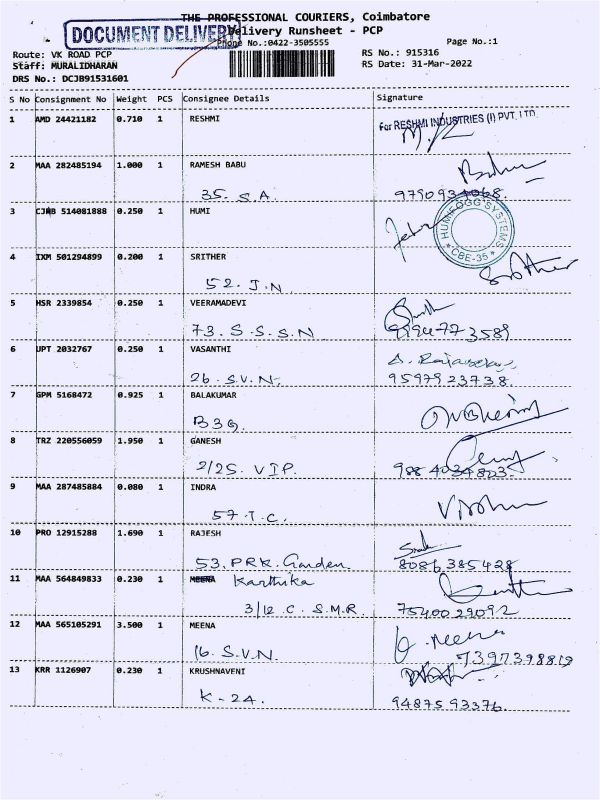 THE PROFESSIONAL COURIERS, Coimbatore
DOCUMENT DELIVERY
Delivery Runsheet - PCP
Phone No.:0422-3505555
Page No.:1
Route: VK ROAD PCP
RS No.: 915316
Staff: MURALIDHARAN
RS Date: 31-Mar-2022
DRS No.: DCJB91531601
S No Consignment No Weight PCS Consignee Details Signature
1 AMD 24421182 0.710 1 RESHMI
For RESHMI INDUSTRIES (I) PVT. LTD.
2 MAA 282485194 1.000 1 RAMESH BABU
35. S.A. 9790934068
3 CJNB 514081888 0.250 1 HUMI
HUMIFOGG SYSTEMS
* CBE-35 *
4 IXM 501294899 0.200 1 SRITHER
52. J.N Srither
5 HSR 2339854 0.250 1 VEERAMADEVI
73. S.S.S.N
6 UPT 2032767 0.250 1 VASANTHI
26. S.V.N. 9597923738
7 GPM 5168472 0.925 1 BALAKUMAR
8 TRZ 220556059 1.950 1 GANESH
2/25. VIP. 9884034823
9 MAA 287485884 0.080 1 INDRA
57. T.C.
10 PRO 12915288 1.690 1 RAJESH
53. PRK. Garden 8086385428
11 MAA 564849833 0.230 1 MEENA Karthika
3/12. C. S.M.R. 7540029092
12 MAA 565105291 3.500 1 MEENA
16. S.V.N. 7397398819
13 KRR 1126907 0.230 1 KRUSHNAVENI
K-24. 9487593376